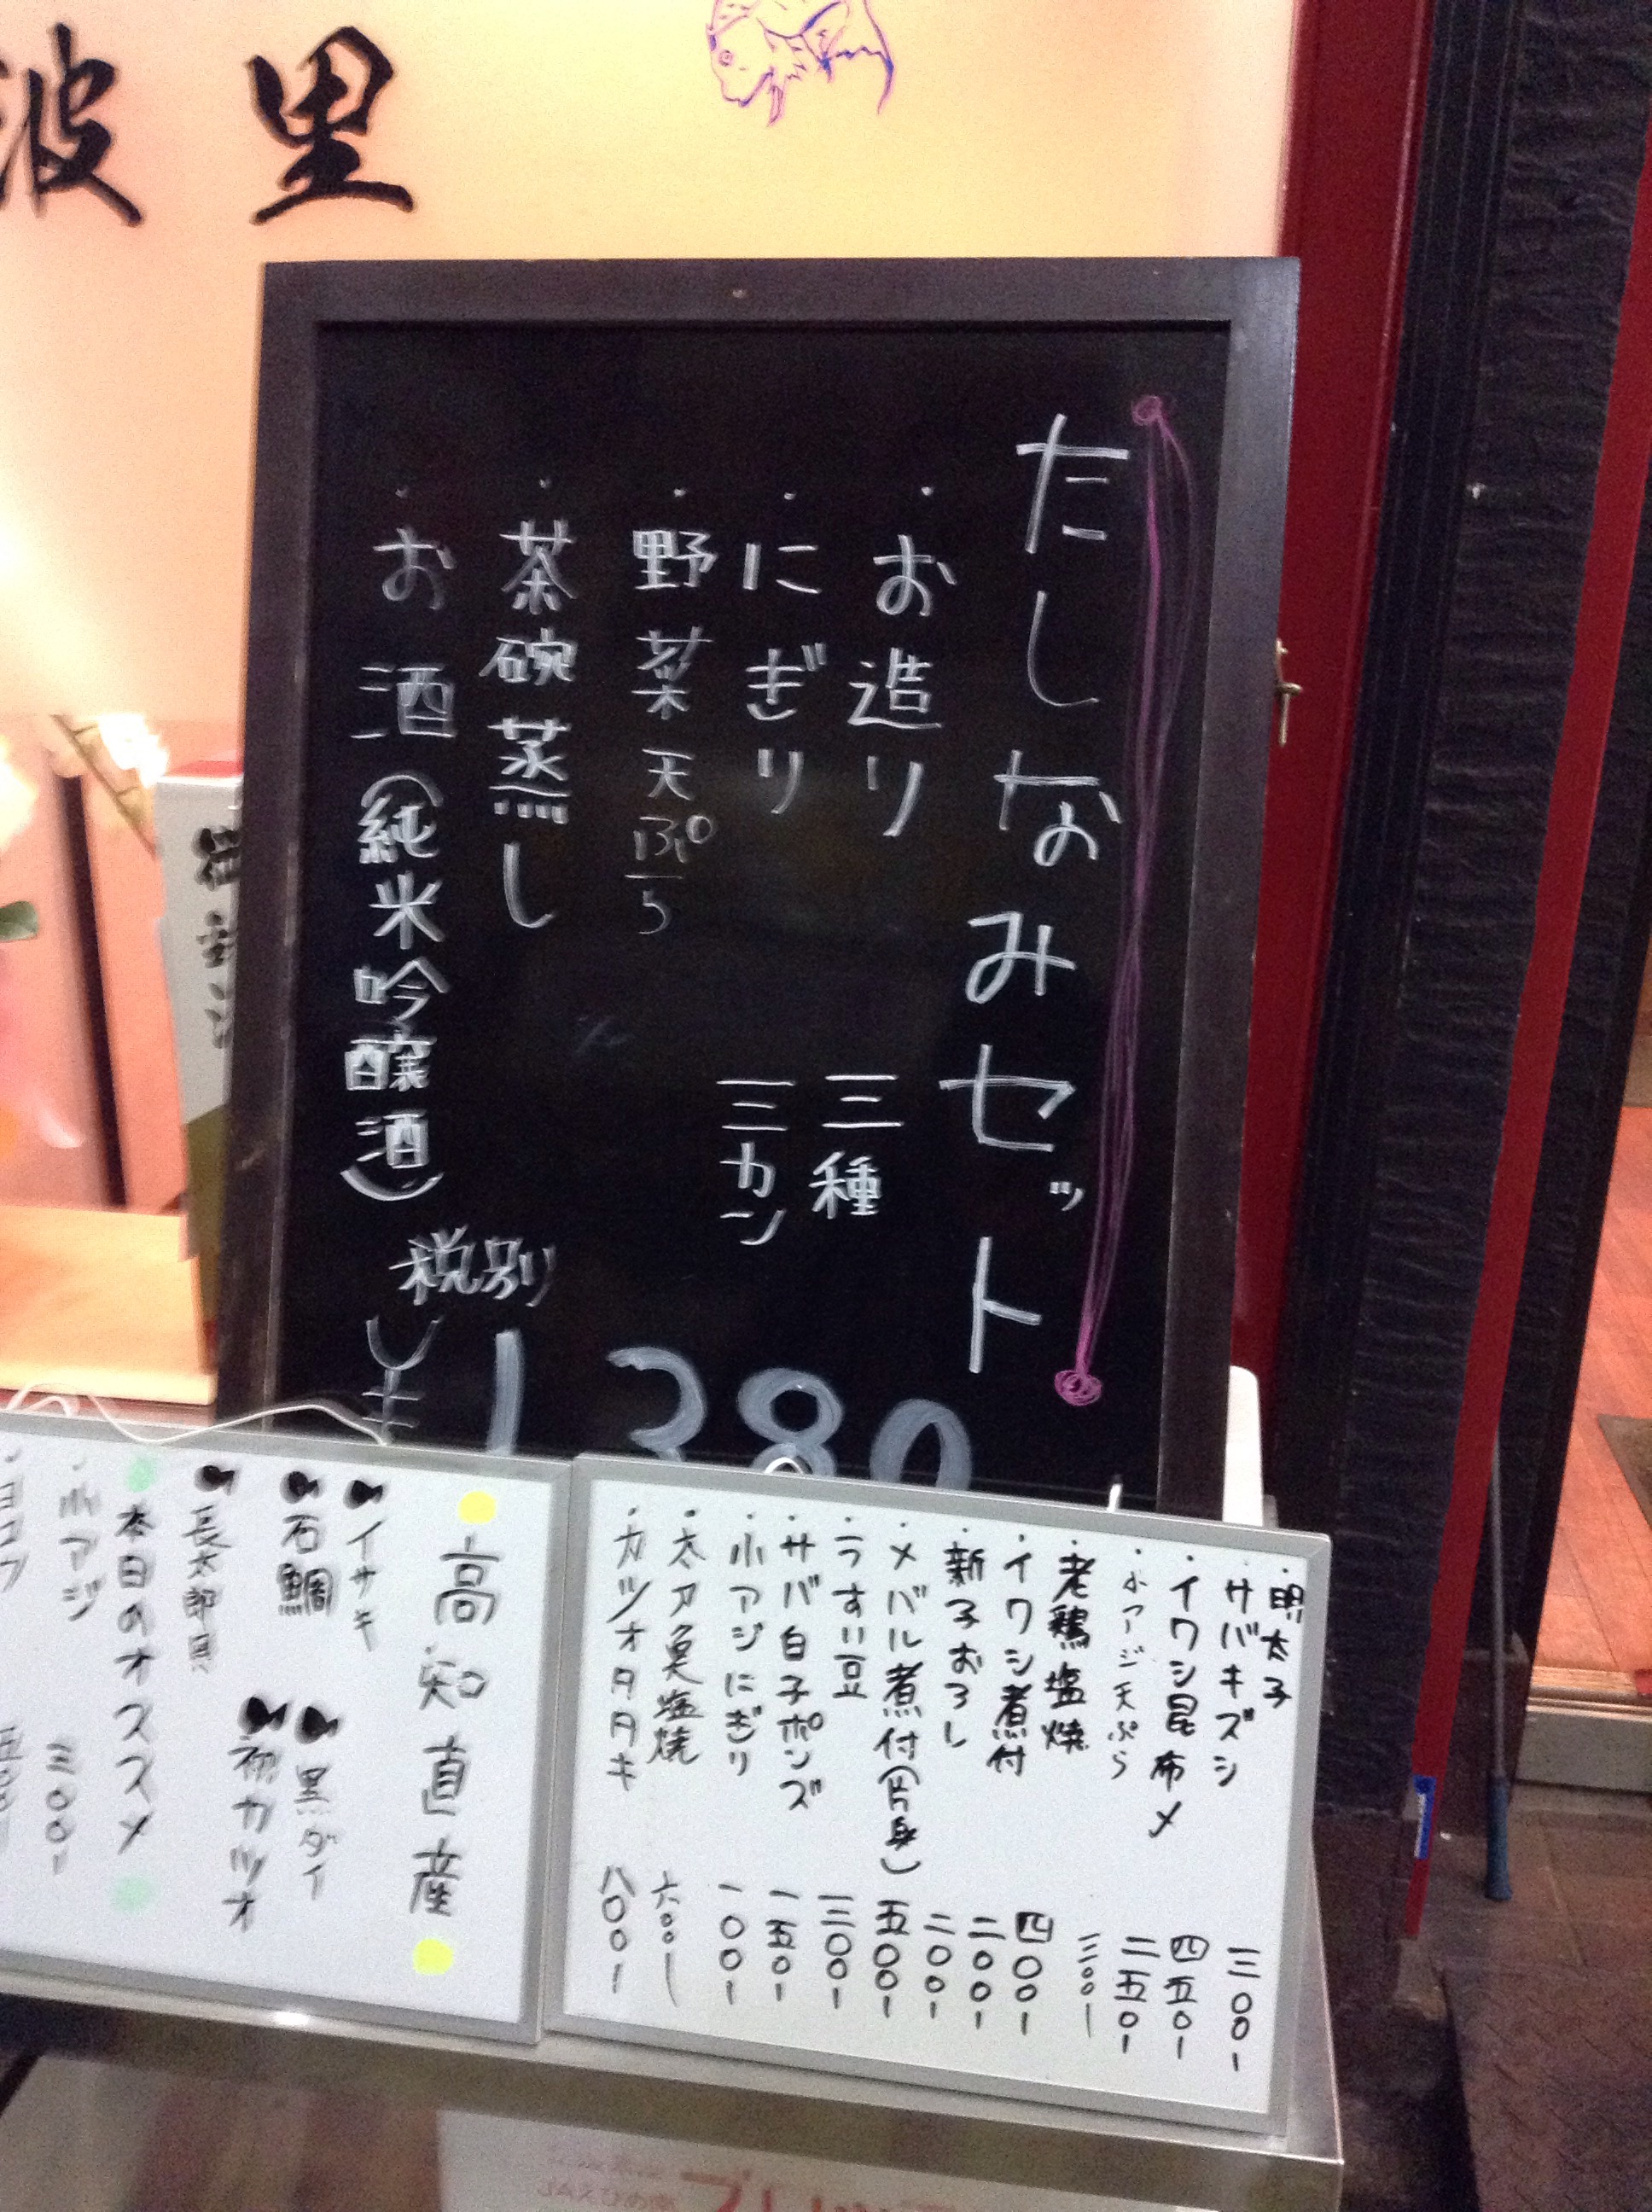 波里
たしなみセット
・お造り 三種
・にぎり 三カン
・野菜天ぷら
・茶碗蒸し
・お酒(純米吟醸酒)
税別
¥1,380
・明太子
・サバキズシ 三〇〇-
・イワシ昆布〆 四五〇-
・小アジ天ぷら 二五〇-
・老鶏塩焼 三〇〇-
・イワシ煮付 四〇〇-
・新子おろし 二〇〇-
・メバル煮付(片身) 二〇〇-
・うすい豆 五〇〇-
・サバ白子ポンズ 三〇〇-
・小アジにぎり 一五〇-
・太刀魚塩焼 一〇〇-
・カツオタタキ 六〇〇-
八〇〇-
高知直産
イサキ
石鯛 黒ダイ
初カツオ
長太郎貝
本日のオススメ
・小アジ 三〇〇-
・ヨコワ